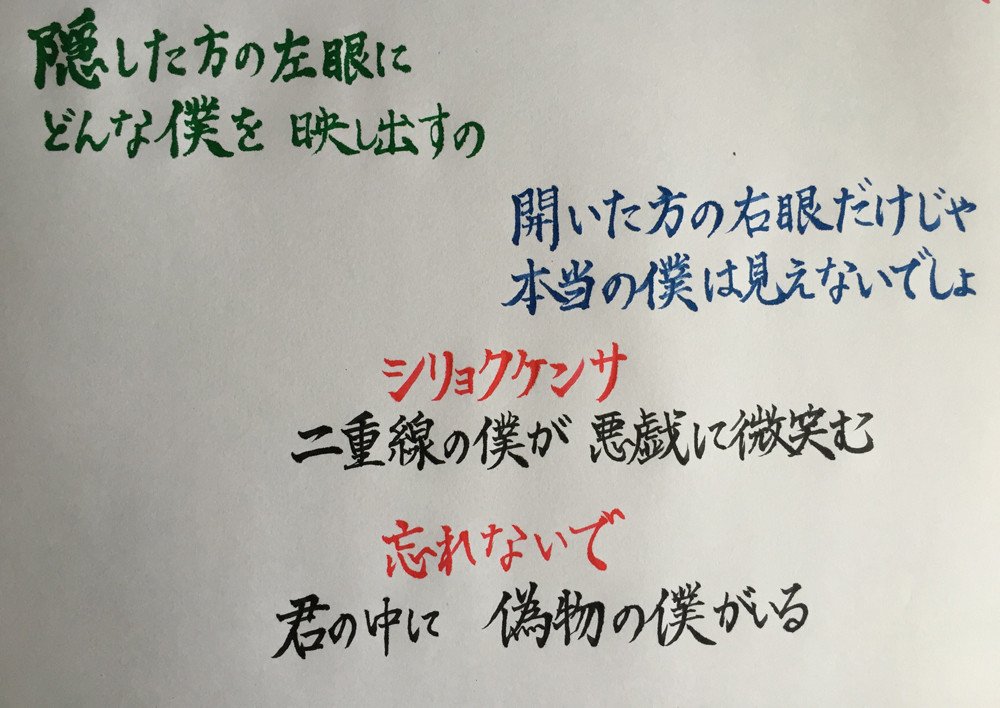 隠した方の左眼に
どんな僕を 映し出すの
開いた方の右眼だけじゃ
本当の僕は見えないでしょ
シリョクケンサ
二重線の僕が 悪戯に微笑む
忘れないで
君の中に 偽物の僕がいる